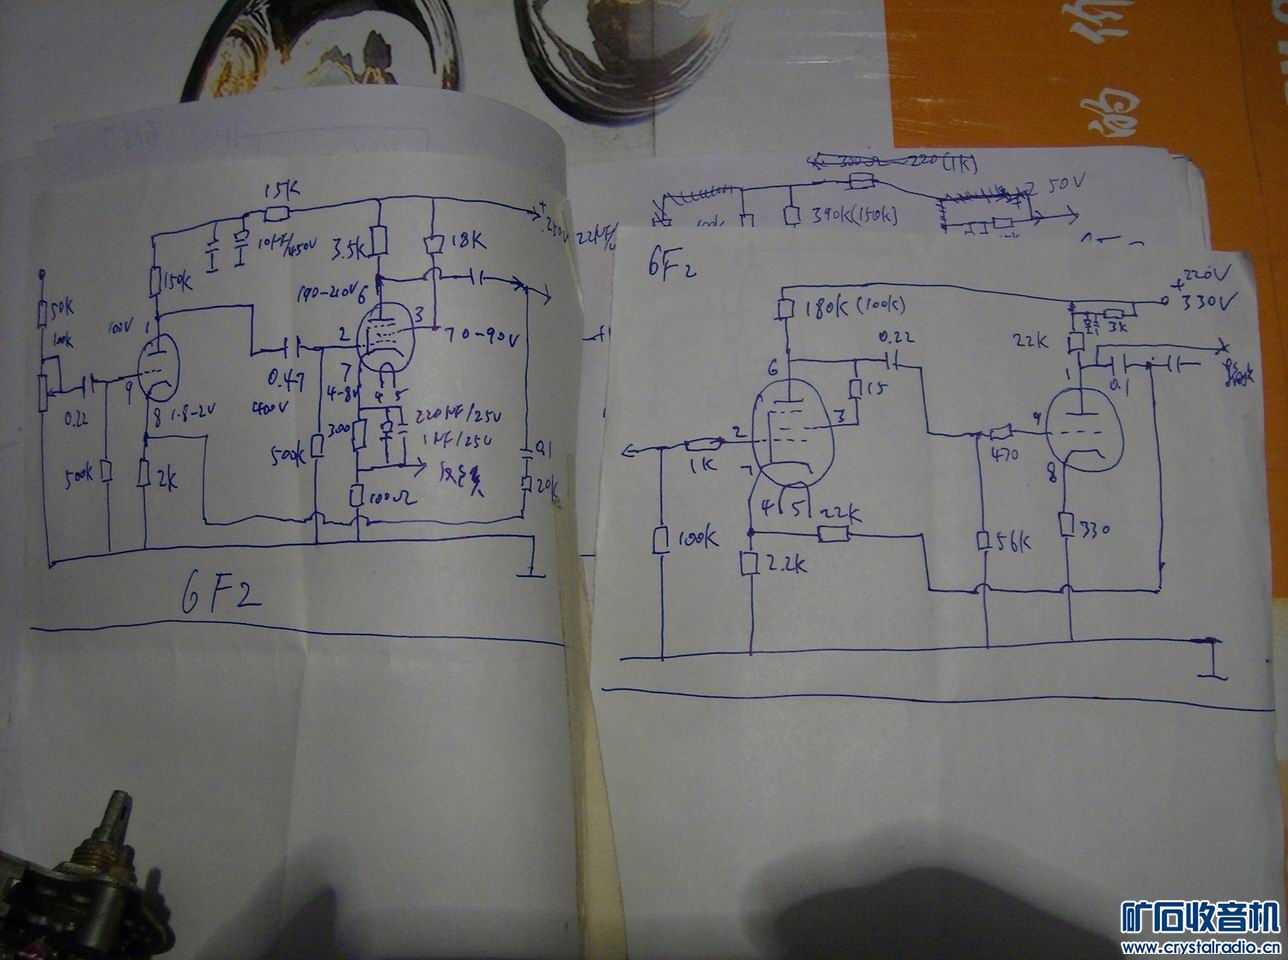 的价
300Ω 220(1K)
50V
390K(150K)
15K
10μF/450V
3.5K
18K
+
250V
150K
190-210V
6
3
70-90V
50K
100K
100V
1
9
0.22
8
1.8-2V
0.47
400V
2
7
4-8V
4
5
220μF/25V
1μF/25V
300
500K
2K
500K
100Ω
0.1
20K
6F2
22μF/
6F2
+220V
330V
180K(100K)
0.22
3K
22K
6
15
1
0.1
3
2
1K
9
470
7
8
4
5
22K
100K
56K
330
2.2K
矿石收音机
www.crystalradio.cn